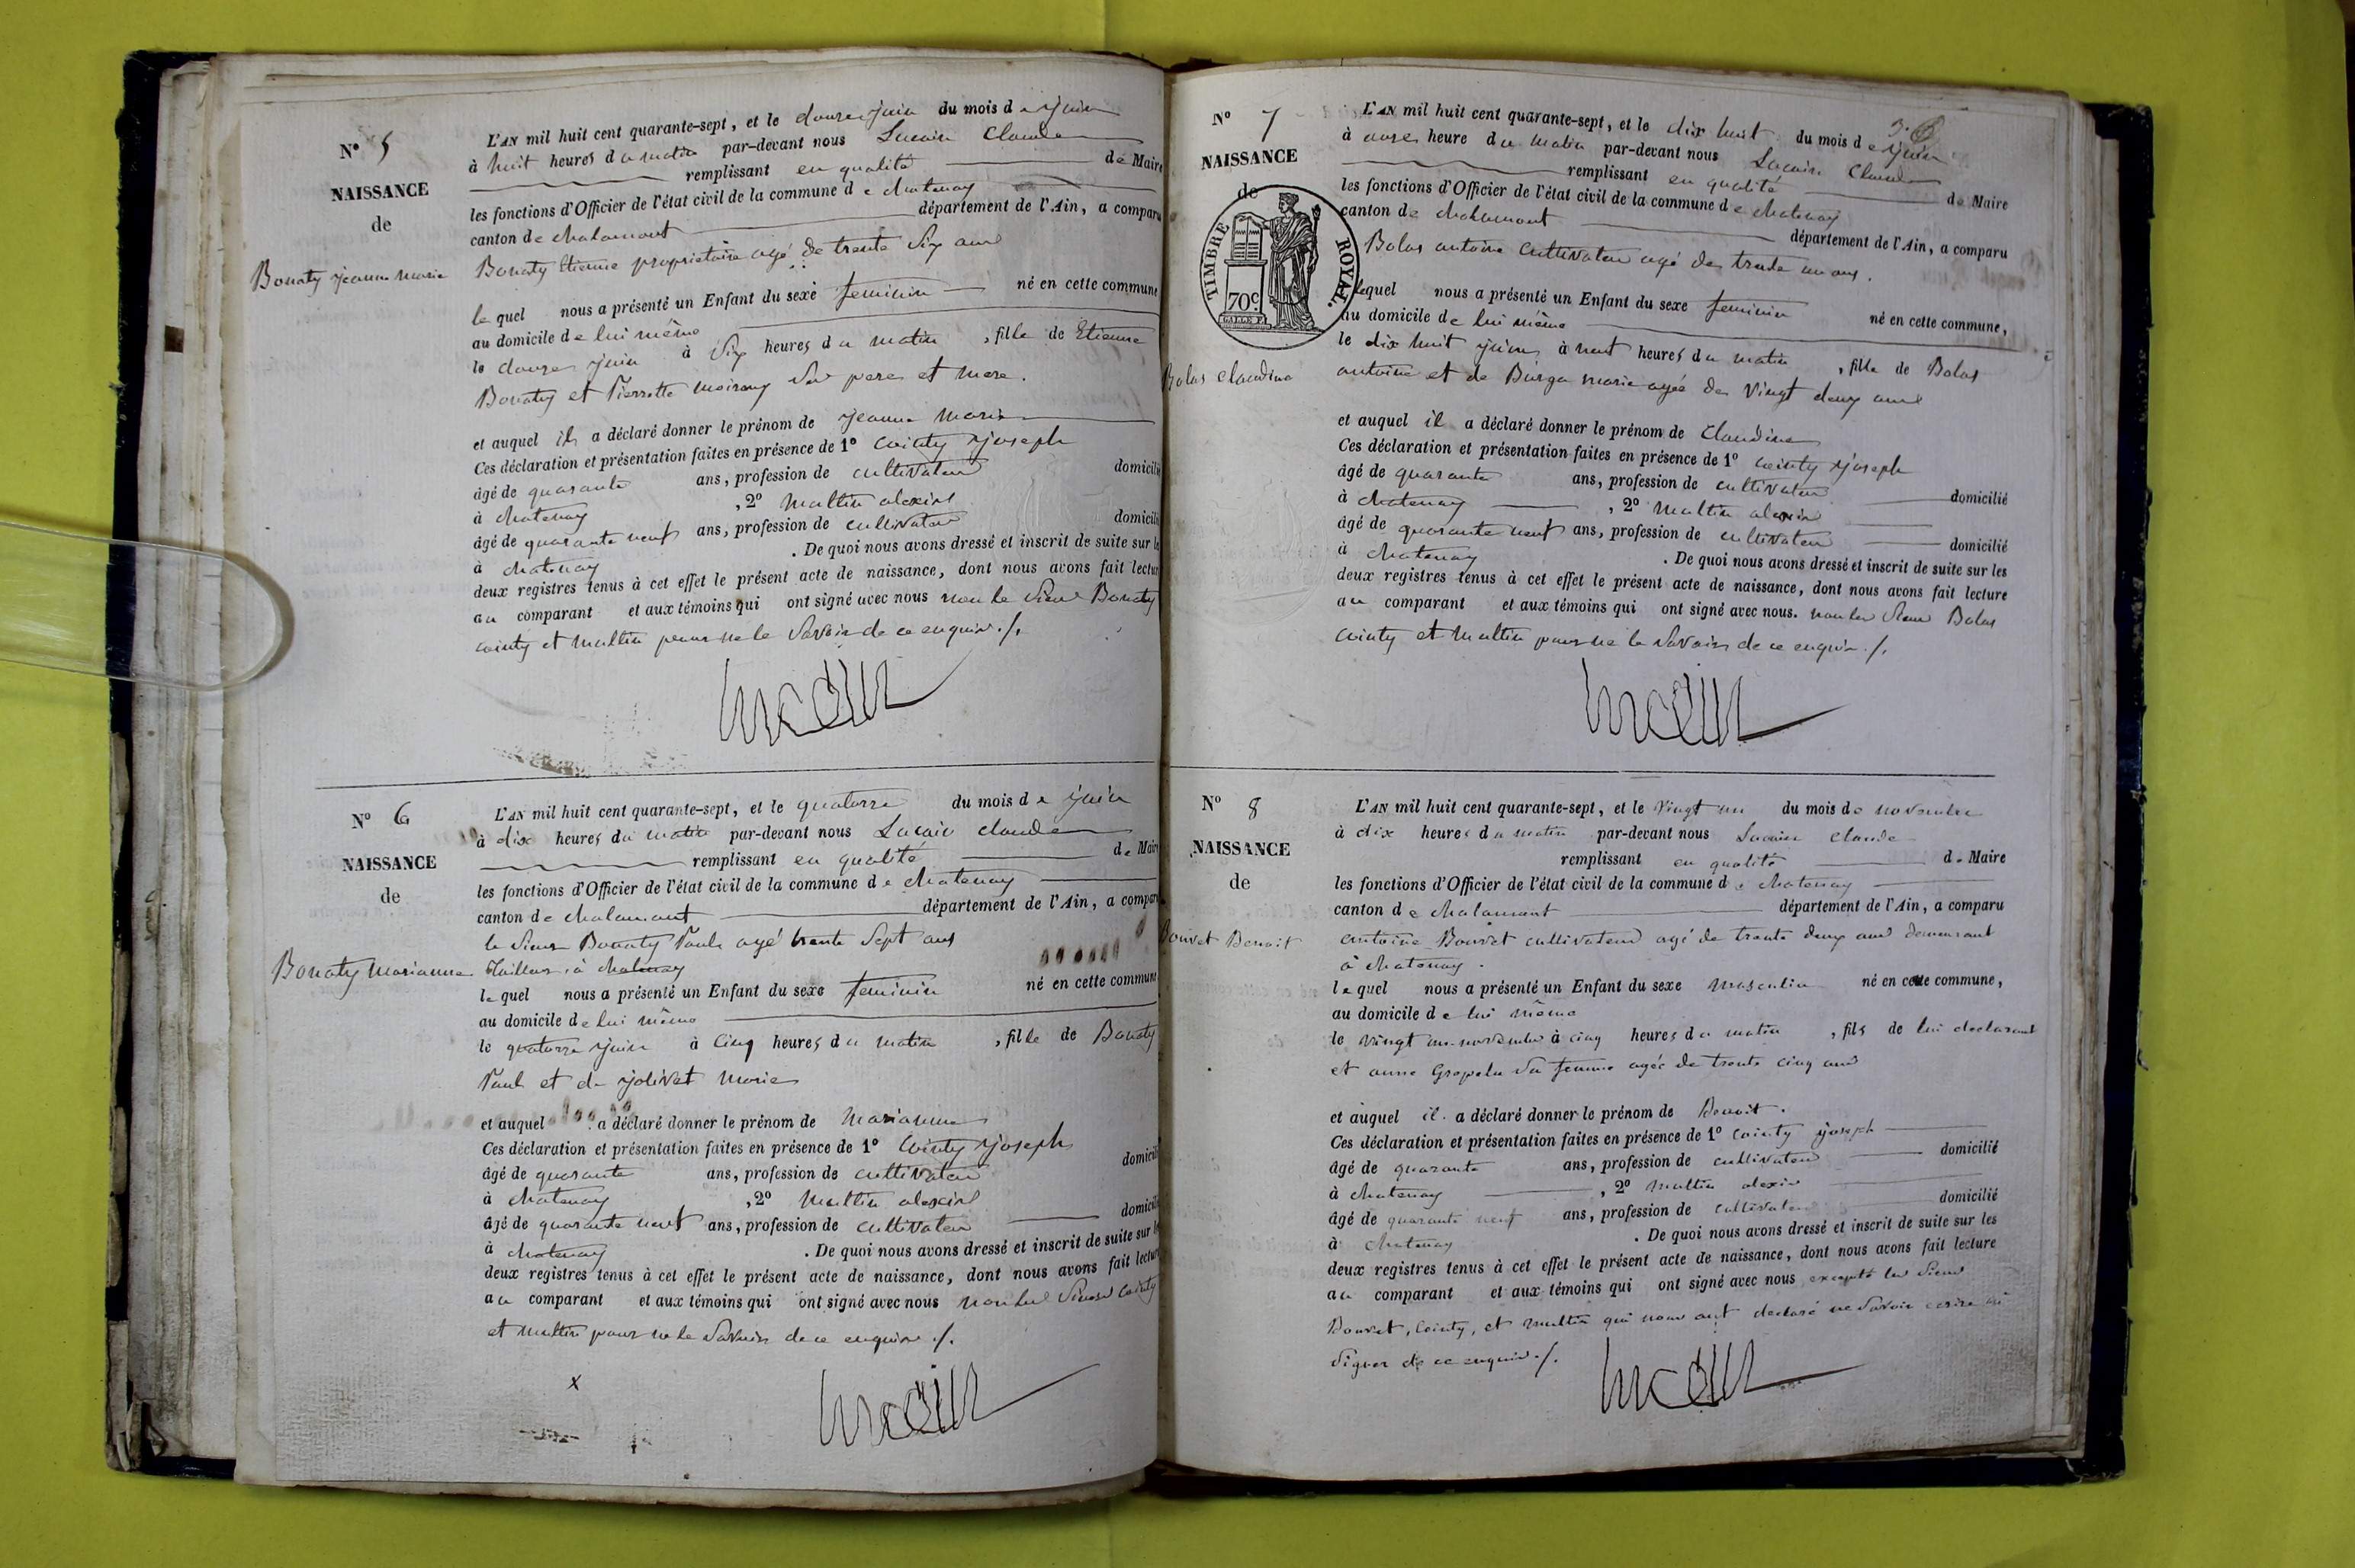 N° 5
NAISSANCE
de
Bonaty jeanne marie
L'AN mil huit cent quarante-sept, et le douze juin du mois de juin
à huit heures du matin par-devant nous Lucain Claude
remplissant en qualité de Maire
les fonctions d'Officier de l'état civil de la commune de chatenay
canton de chalamont département de l'Ain, a comparu
Bonaty Etienne proprietaire agé de trente Six ans
lequel nous a présenté un Enfant du sexe feminin né en cette commune
au domicile de lui même
le douze juin à Six heures du matin, fille de Etienne
Bonaty et Pierrette moirany Ses pere et mere.
et auquel il a déclaré donner le prénom de jeanne marie
Ces déclaration et présentation faites en présence de 1° Cointy joseph
âgé de quarante ans, profession de cultivateur domicilié
à chatenay, 2° multin alexis
âgé de quarante neuf ans, profession de cultivateur domicilié
à chatenay. De quoi nous avons dressé et inscrit de suite sur les
deux registres tenus à cet effet le présent acte de naissance, dont nous avons fait lecture
au comparant et aux témoins qui ont signé avec nous non le Sieur Bonaty
cointy et multin pour ne le Savoir de ce enquis ./.
N° 6
NAISSANCE
de
Bonaty marianne
L'AN mil huit cent quarante-sept, et le quatorze du mois de juin
à dix heures du matin par-devant nous Lucain claude
remplissant en qualité de Maire
les fonctions d'Officier de l'état civil de la commune de chatenay
canton de chalamont département de l'Ain, a comparu
le Sieur Bonaty Paul agé trente Sept ans
tailleur à chatenay
lequel nous a présenté un Enfant du sexe feminin né en cette commune
au domicile de lui même
le quatorze juin à Cinq heures du matin, fille de Bonaty
Paul et de jolivet marie
et auquel a déclaré donner le prénom de marianne
Ces déclaration et présentation faites en présence de 1° Cointy joseph
âgé de quarante ans, profession de cultivateur domicilié
à chatenay, 2° multin alexis
âgé de quarante neuf ans, profession de cultivateur domicilié
à chatenay. De quoi nous avons dressé et inscrit de suite sur les
deux registres tenus à cet effet le présent acte de naissance, dont nous avons fait lecture
au comparant et aux témoins qui ont signé avec nous non les Sieurs cointy
et multin pour ne le Savoir de ce enquis ./.
x
N° 7
NAISSANCE
de
TIMBRE ROYAL.
70c
Bolas claudine
L'AN mil huit cent quarante-sept, et le dix huit du mois de juin
à onze heure du matin par-devant nous Lucain Claude
remplissant en qualité de Maire
les fonctions d'Officier de l'état civil de la commune de chatenay
canton de chalamont département de l'Ain, a comparu
Bolas antoine cultivateur agé de trente un ans.
lequel nous a présenté un Enfant du sexe feminin né en cette commune,
au domicile de lui même
le dix huit juin à neuf heures du matin, fille de Bolas
antoine et de Burga marie agée de Vingt deux ans
et auquel il a déclaré donner le prénom de Claudine
Ces déclaration et présentation faites en présence de 1° cointy joseph
âgé de quarante ans, profession de cultivateur domicilié
à chatenay, 2° multin alexis
âgé de quarante neuf ans, profession de cultivateur domicilié
à chatenay. De quoi nous avons dressé et inscrit de suite sur les
deux registres tenus à cet effet le présent acte de naissance, dont nous avons fait lecture
au comparant et aux témoins qui ont signé avec nous. non les Sieurs Bolas
cointy et multin pour ne le Savoir de ce enquis ./.
N° 8
NAISSANCE
de
Bouvet Benoit
L'AN mil huit cent quarante-sept, et le Vingt un du mois de novembre
à dix heures du matin par-devant nous Lucain claude
remplissant en qualité de Maire
les fonctions d'Officier de l'état civil de la commune de chatenay
canton de chalamont département de l'Ain, a comparu
antoine Bouvet cultivateur agé de trente deux ans demeurant
à chatenay.
lequel nous a présenté un Enfant du sexe masculin né en cette commune,
au domicile de lui même
le vingt un novembre à cinq heures du matin, fils de lui declarant
et anne Gropelu Sa femme agée de trente cinq ans
et auquel il a déclaré donner le prénom de Benoit.
Ces déclaration et présentation faites en présence de 1° cointy joseph
âgé de quarante ans, profession de cultivateur domicilié
à chatenay, 2° multin alexis
âgé de quarante neuf ans, profession de cultivateur domicilié
à chatenay. De quoi nous avons dressé et inscrit de suite sur les
deux registres tenus à cet effet le présent acte de naissance, dont nous avons fait lecture
au comparant et aux témoins qui ont signé avec nous excepté les Sieurs
Bouvet, Cointy, et multin qui nous ont declaré ne Savoir ecrire ni
Signer de ce enquis ./.